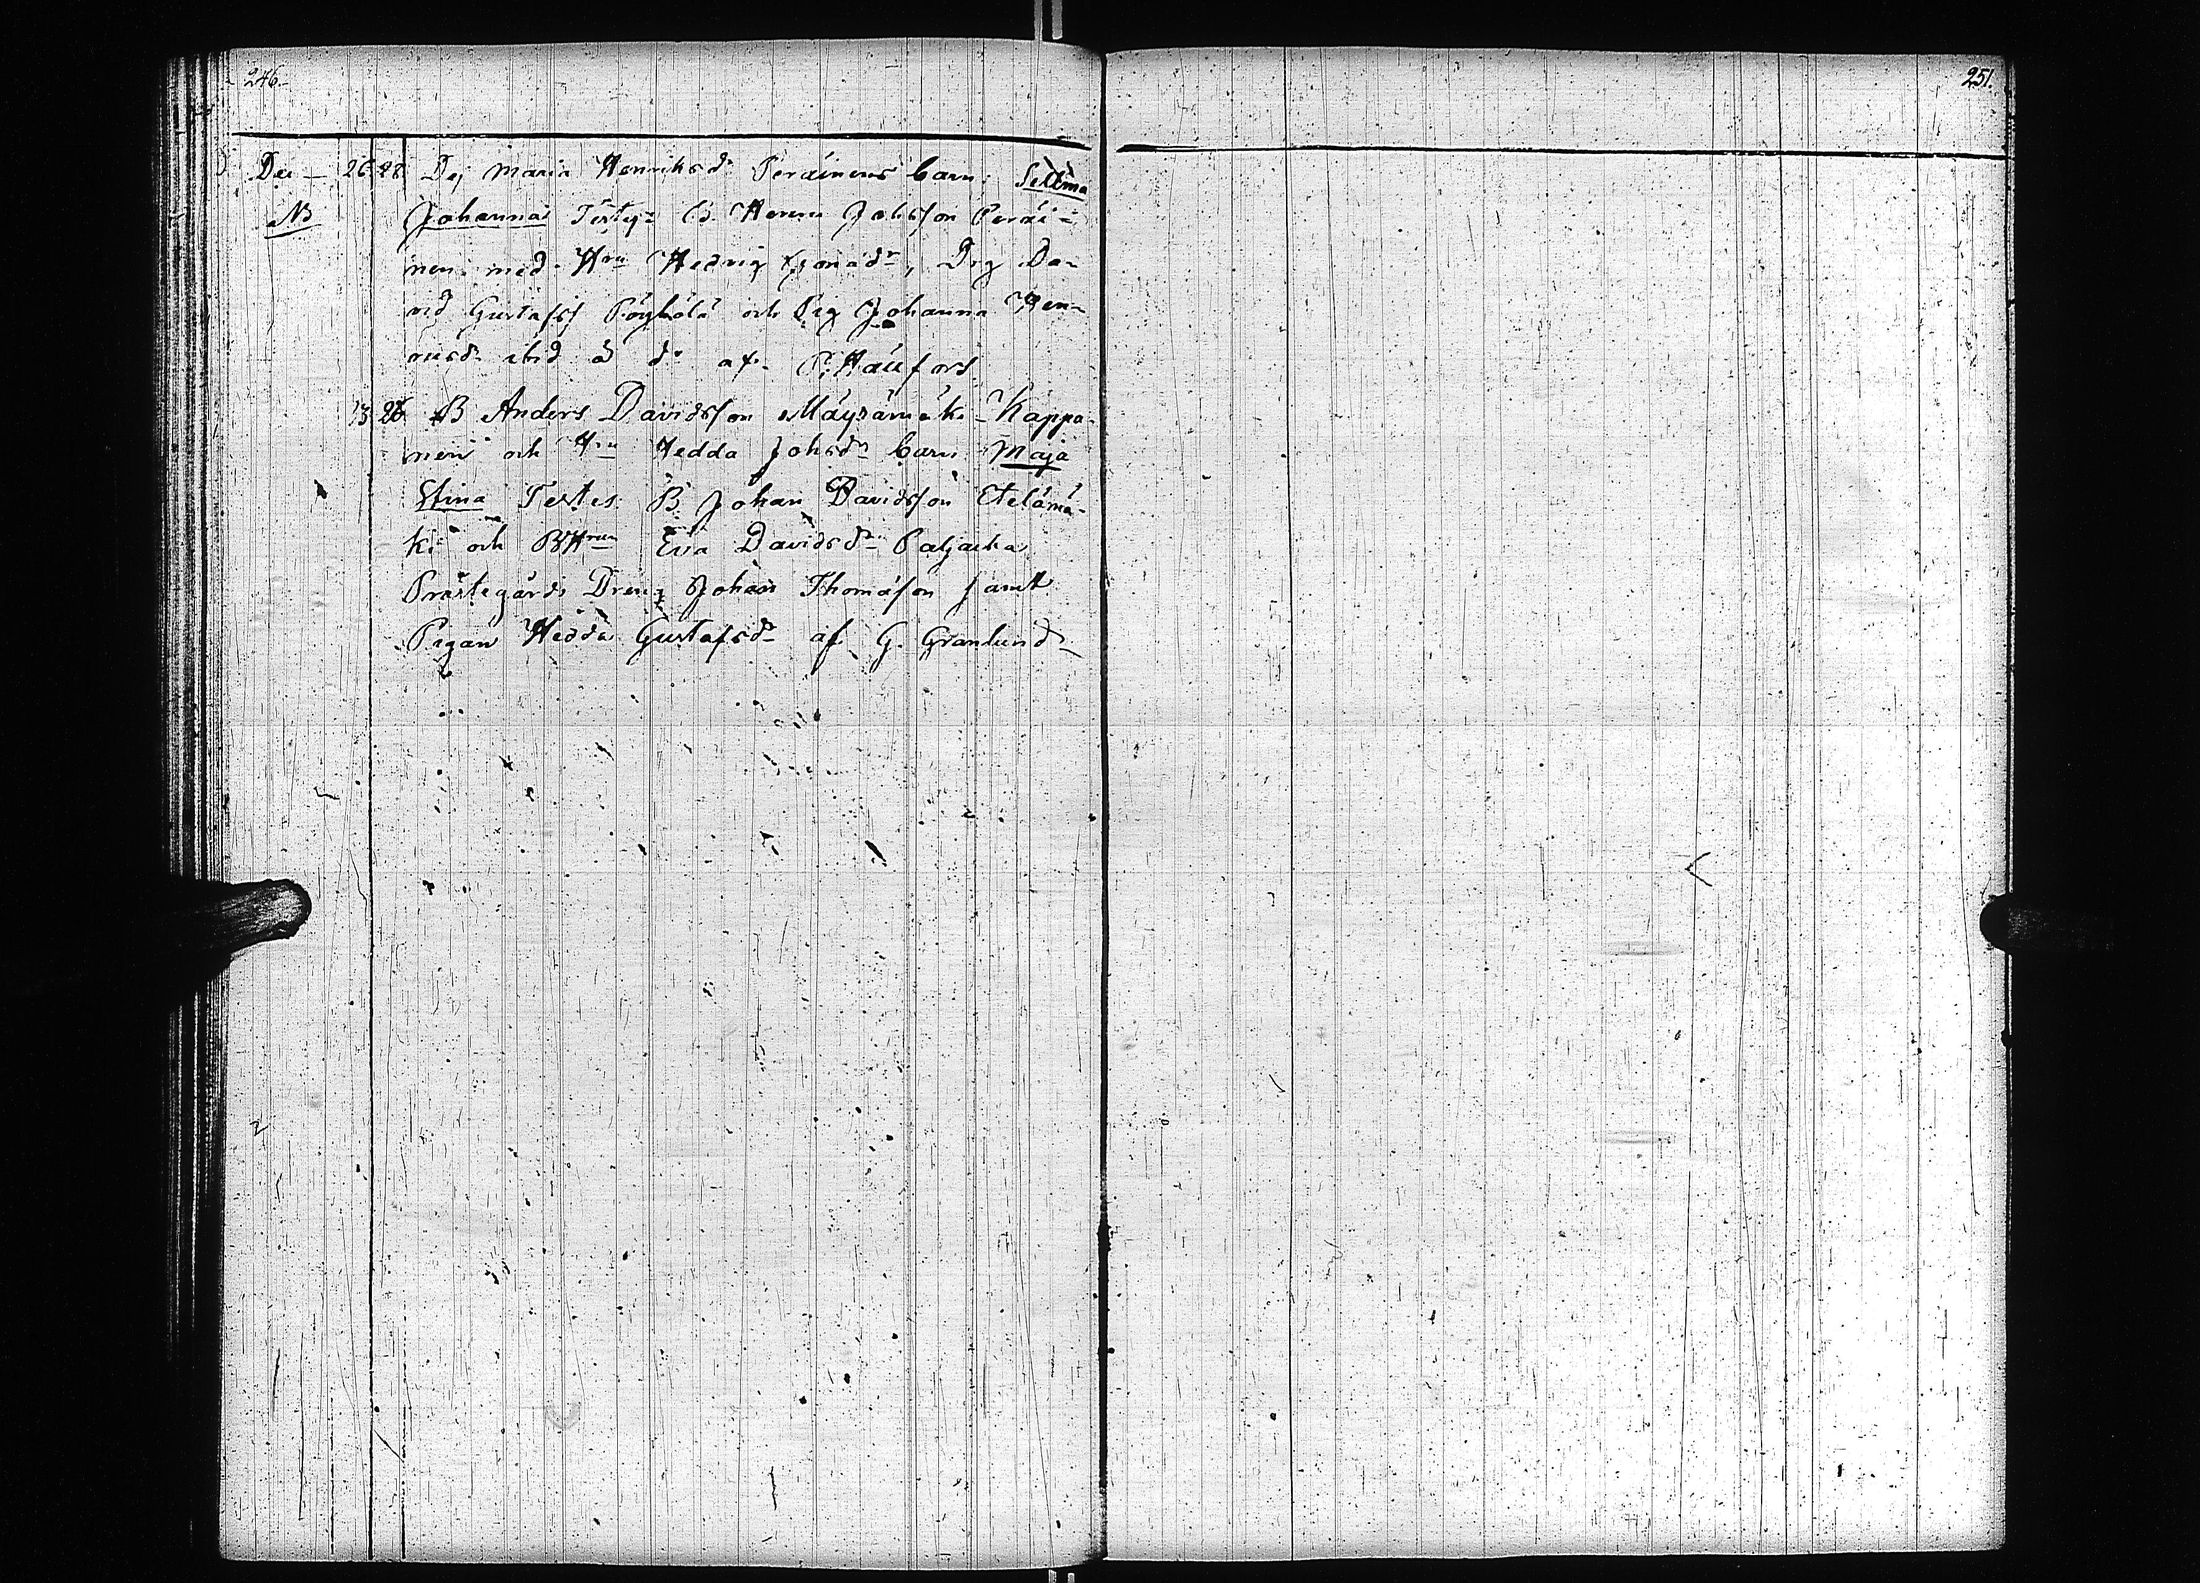 246.
251.
Dec — 26 28 Dej Maria Henriksdr Peräinens barn Sellma
NB Johanna Testes B. Johsson Peräi-
nen med Hru Hedvig, Drg Da-
vid Gustafss Pöyhölä och Pig Johanna Hen-
ricsdr ibid af P. Haufors
13 26 B Anders Davidsson Mäysämäki Kappa-
nen och Hru Hedda Johsdr barn Maja
Stina Testes B Johan Davidsson Etelämä-
ki och BHrun Eva Davidsdr Paljacka
Prästegårds Dreng Johan Thomasson samt
Pigan Hedda Gustafsdr af G. Granlund